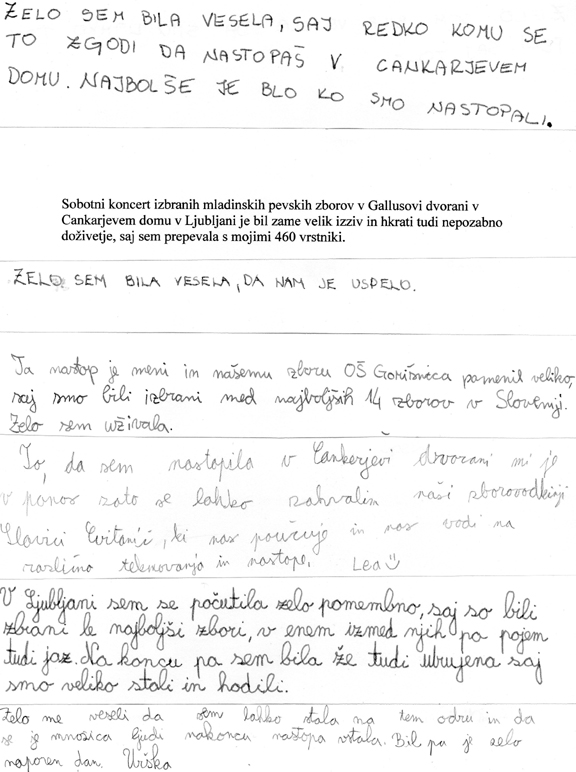 ŽELO SEM BILA VESELA, SAJ REDKO KOMU SE
TO ZGODI DA NASTOPAŠ V CANKARJEVEM
DOMU. NAJBOLŠE JE BLO KO SMO NASTOPALI.
Sobotni koncert izbranih mladinskih pevskih zborov v Gallusovi dvorani v
Cankarjevem domu v Ljubljani je bil zame velik izziv in hkrati tudi nepozabno
doživetje, saj sem prepevala s mojimi 460 vrstniki.
ŽELO SEM BILA VESELA, DA NAM JE USPELO.
Ta nastop je meni in našemu zboru OŠ Gorišnica pomenil veliko,
saj smo bili izbrani med najboljših 14 zborov v Sloveniji.
Želo sem uživala.
To, da sem nastopila v Cankerjevi dvorani mi je
v ponos zato se lahko zahvalim naši zborovodkinji
Slavici Cvitanič, ki nas poučuje in nas vodi na
različna tekmovanja in nastope. Lea☺
V Ljubljani sem se počutila zelo pomembno, saj so bili
zbrani le najboljši zbori, v enem izmed njih pa pojem
tudi jaz. Na koncu pa sem bila že tudi utrujena saj
smo veliko stali in hodili.
Zelo me veseli da sem lahko stala na tem odru in da
se je množica ljudi nakoncu nastopa vstala. Bil pa je zelo
naporen dan. Urška